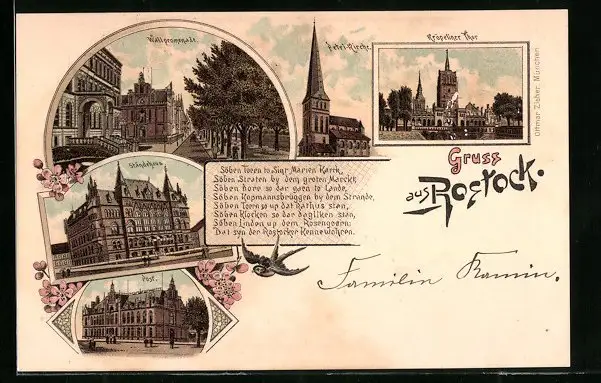 Wallpromenade.
Petri-Kirche.
Kröpeliner Thor
Ottmar Zieher, München
Ständehaus
Söben Toren to Sint Marien Karck,
Söben Straten by dem groten Marckt,
Söben Dore so dar gaen to Lande,
Söben Kopmannsbrüggen by dem Strande,
Söben Toren so up dat Rathus stan,
Söben Klocken so dar dagliken slan,
Söben Linden up dem Rosengoern:
Dat syn der Rostocker Kennewohren.
Gruss
aus Rostock.
Post.
Familin Ramin.